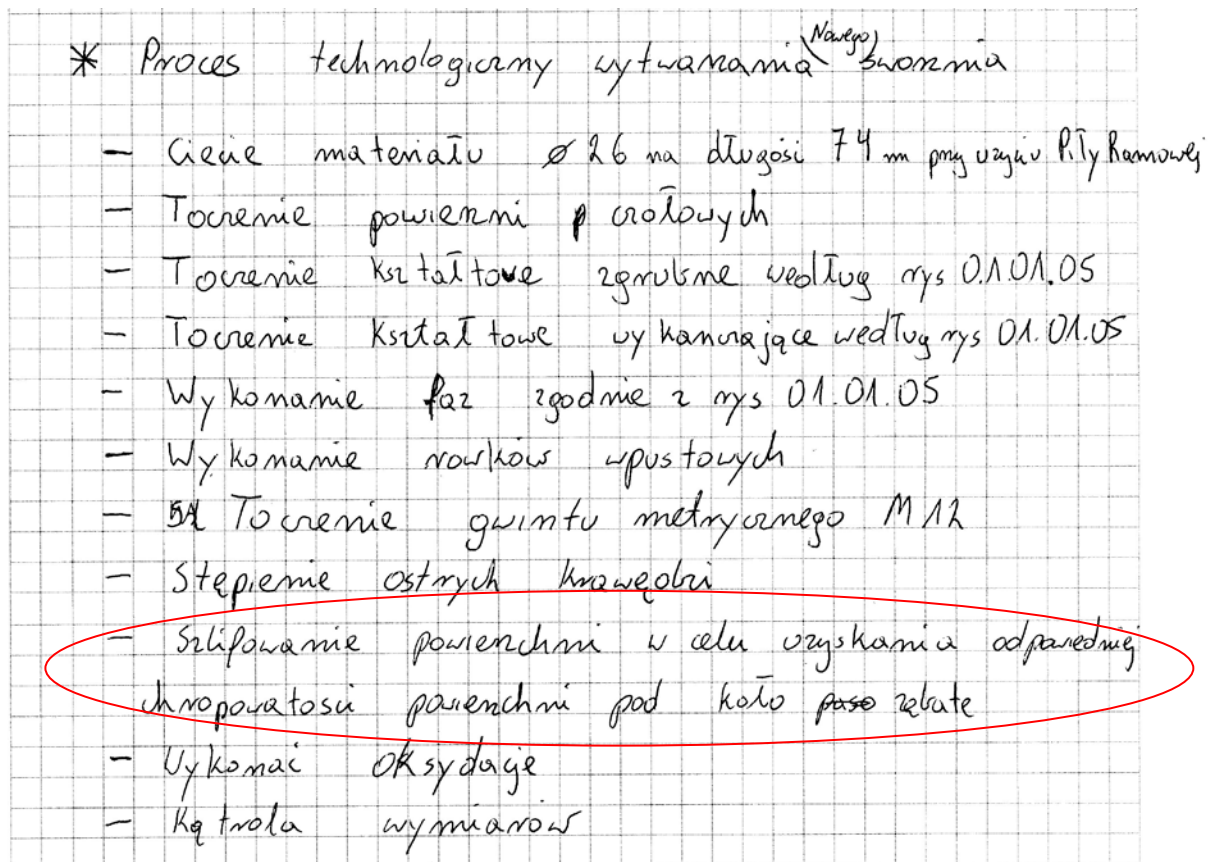 * Proces technologiczny wytwarzania Nowego sworznia
- Cięcie materiału ø 26 na długości 74 mm przy użyciu Piły Ramowej
- Toczenie powierzni czołowych
- Toczenie kształtowe zgrubne według rys 01.01.05
- Toczenie kształtowe wykańczające według rys 01.01.05
- Wykonanie faz zgodnie z rys 01.01.05
- Wykonanie rowków wpustowych
- Toczenie gwintu metrycznego M12
- Stępienie ostrych krawędzi
- Szlifowanie powierzchni w celu uzyskania odpowiedniej
chropowatości powierzchni pod koło zębate
- Wykonać oksydację
- Kątrola wymiarów